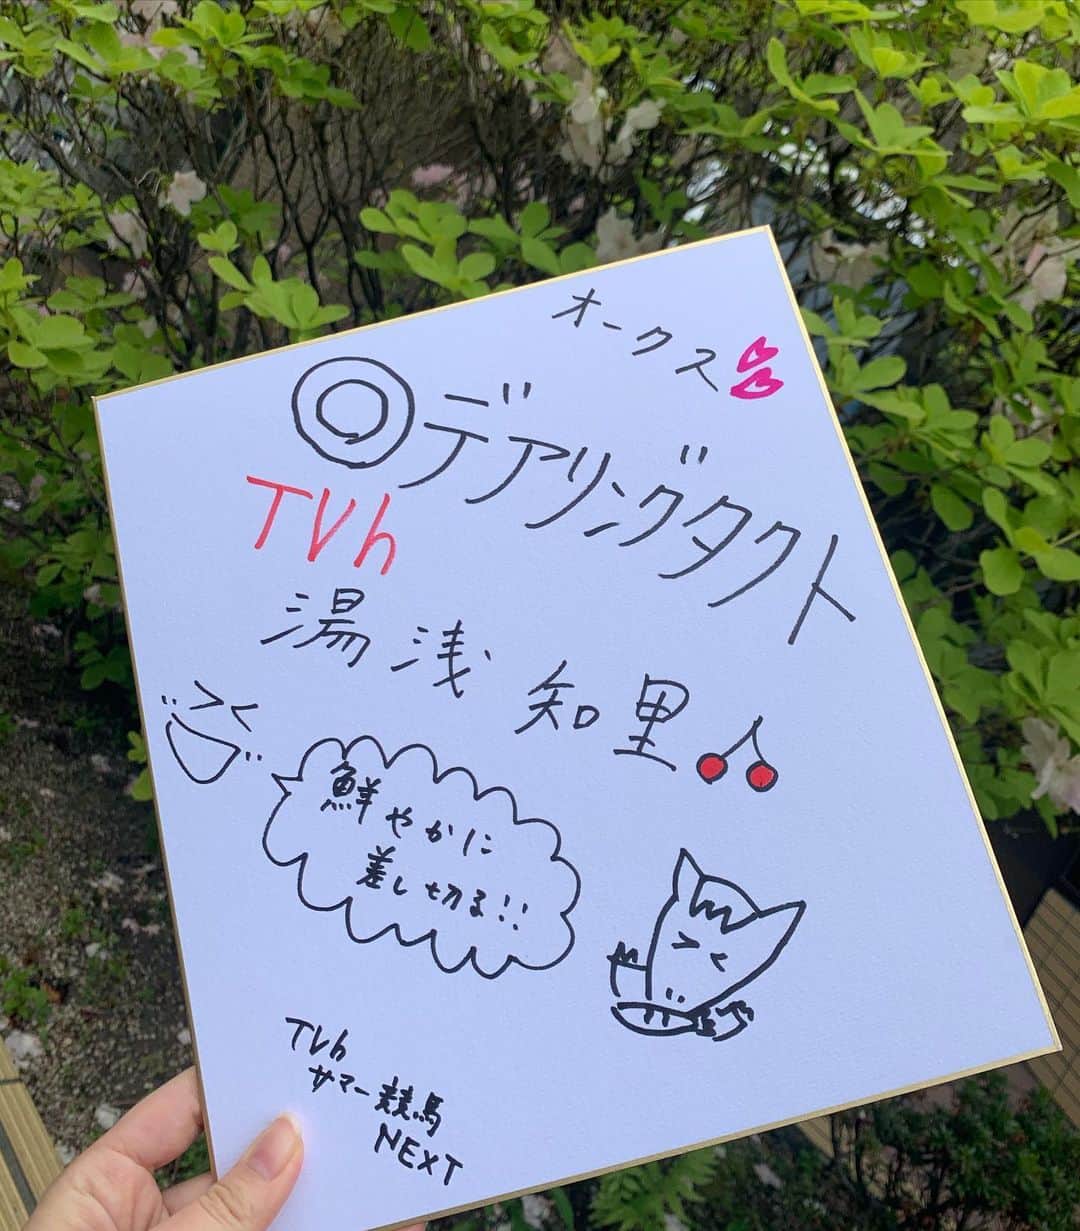 オークス
◎デアリングタクト
TVh
湯浅知里
鮮やかに
差し切る!!
TVh
サマー競馬
NEXT